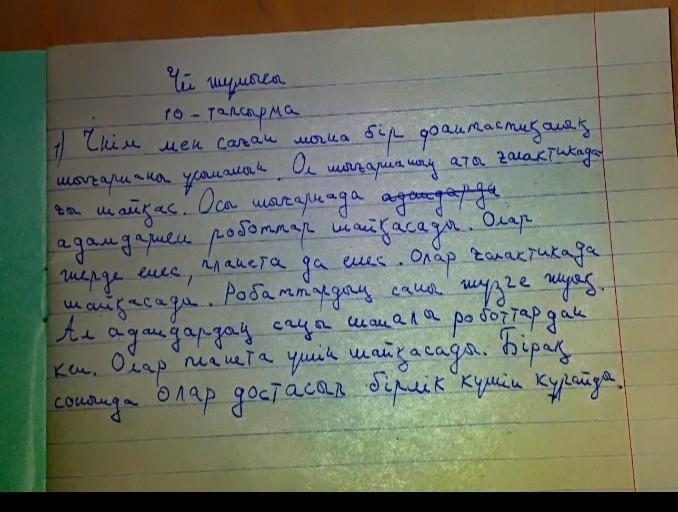 Үй жұмысы
10-тапсырма
1) Інім мен саған мына бір фантастикалық
шығарманы ұсынамын. Ол шығарманың аты галактикада-
ғы шайқас. Осы шығармада адамдарда
адамдармен роботтар шайқасады. Олар
жерде емес, планета да емес. Олар галактикада
шайқасада. Робаттардың саны жүзге жуық.
Ал адамдардың саңы шамалы роботтардан
кем. Олар планета үшін шайқасады. Бірақ
сонында олар достасып бірлік күшін құрайды.